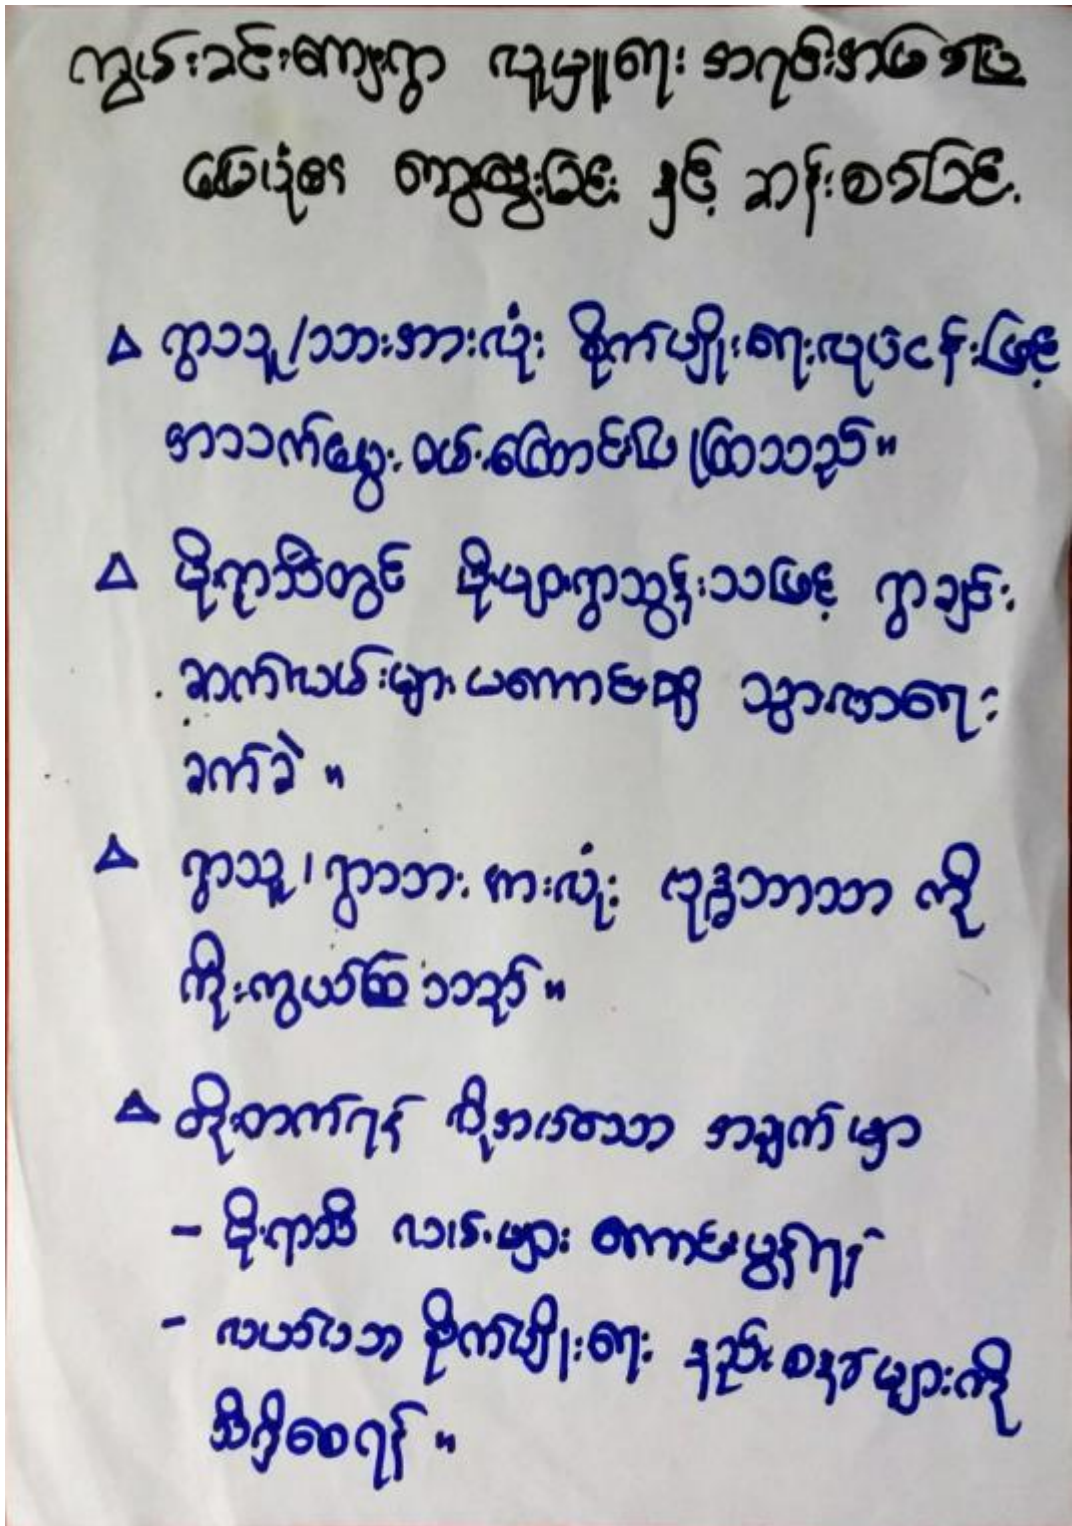 ကွမ်းခင်းကျေးရွာ လူမှူရေး အရင်းအမြစ်ပြ
မြေပုံ၏ တွေးတွေးခြင်း နှင့် ဆန်းစစ်ခြင်း
ရွာသူ/သားအားလုံး စိုက်ပျိုးရေးလုပ်ငန်းဖြင့်
အသက်မွေး ဝမ်းကြောင်းပြုကြသည်။
မိုးရာသီတွင် မိုးများရွာသွန်းသဖြင့် ရွာချင်း
ဆက်လမ်းများ မကောင်း၍ သွားလာရေး
ခက်ခဲ ။
ရွာသူ၊ ရွာသား အားလုံး ဗုဒ္ဓဘာသာ ကို
ကိုးကွယ်ကြသည် ။
တိုးတက်ရန် လိုအပ်သော အချက်များ
- မိုးရာသီ လမ်းများ ကောင်းမွန်ရန်
- လယ်ယာ စိုက်ပျိုးရေး နည်းစနစ်များကို
သိရှိစေရန် ။